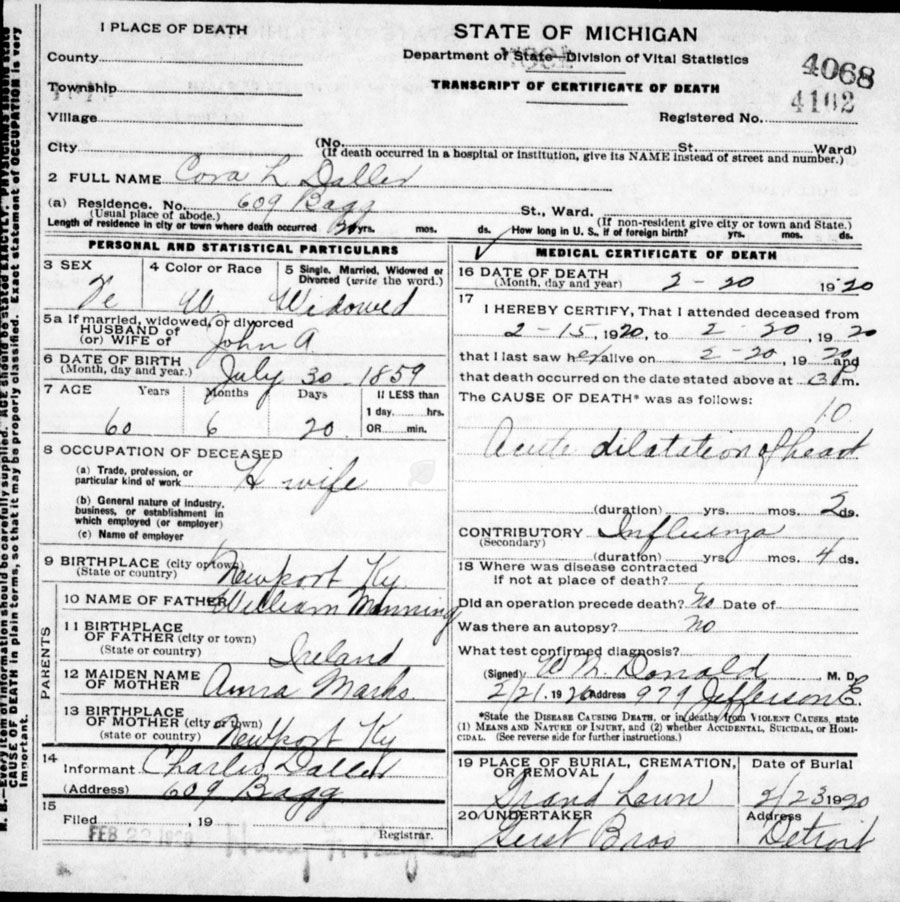 1 PLACE OF DEATH
County
Township
Village
City
STATE OF MICHIGAN
Department of State—Division of Vital Statistics
TRANSCRIPT OF CERTIFICATE OF DEATH
4068
4102
Registered No.
(No. St. Ward)
(If death occurred in a hospital or institution, give its NAME instead of street and number.)
2 FULL NAME Cora L Daller
(a) Residence. No. 609 Bagg St., Ward.
(Usual place of abode.) (If non-resident give city or town and State.)
Length of residence in city or town where death occurred yrs. mos. ds. How long in U. S., if of foreign birth? yrs. mos. ds.
PERSONAL AND STATISTICAL PARTICULARS
3 SEX
Fe
4 Color or Race
W
5 Single, Married, Widowed or
Divorced (write the word.)
Widowed
5a If married, widowed, or divorced
HUSBAND of
(or) WIFE of John A.
6 DATE OF BIRTH
(Month, day and year.) July 30 - 1859
7 AGE Years Months Days If LESS than
1 day hrs.
60 6 20 OR min.
8 OCCUPATION OF DECEASED
(a) Trade, profession, or
particular kind of work H wife
(b) General nature of industry,
business, or establishment in
which employed (or employer)
(c) Name of employer
9 BIRTHPLACE (city or town)
(State or country) Newport Ky
PARENTS
10 NAME OF FATHER William Manning
11 BIRTHPLACE
OF FATHER (city or town)
(State or country) Ireland
12 MAIDEN NAME
OF MOTHER Anna Marks
13 BIRTHPLACE
OF MOTHER (city or town)
(state or country) Newport Ky
14
Informant Charles Daller
(Address) 609 Bagg
15
Filed , 19
FEB 1920
Registrar.
MEDICAL CERTIFICATE OF DEATH
16 DATE OF DEATH
(Month, day and year) 2 - 20 1920
17
I HEREBY CERTIFY, That I attended deceased from
2 - 15, 1920, to 2 - 20, 1920
that I last saw her alive on 2 - 20, 1920 and
that death occurred on the date stated above at 3 P m.
The CAUSE OF DEATH* was as follows:
10
Acute dilatation of heart
(duration) yrs. mos. 2 ds.
CONTRIBUTORY Influenza
(Secondary)
(duration) yrs. mos. 4 ds.
18 Where was disease contracted
if not at place of death?
Did an operation precede death? No Date of
Was there an autopsy? no
What test confirmed diagnosis?
(Signed) W M Donald M. D.
2/21, 1920 Address 979 Jefferson E.
*State the DISEASE CAUSING DEATH, or in deaths from VIOLENT CAUSES, state
(1) MEANS AND NATURE OF INJURY, and (2) whether ACCIDENTAL, SUICIDAL, OR HOMI-
CIDAL. (See reverse side for further instructions.)
19 PLACE OF BURIAL, CREMATION,
OR REMOVAL
Grand Lawn
Date of Burial
2/23 1920
20 UNDERTAKER
Geist Bros
Address
Detroit
N. B.—Every item of information should be carefully supplied. AGE should be stated EXACTLY. PHYSICIANS should state
CAUSE OF DEATH in plain terms, so that it may be properly classified. Exact statement of OCCUPATION is very
important.